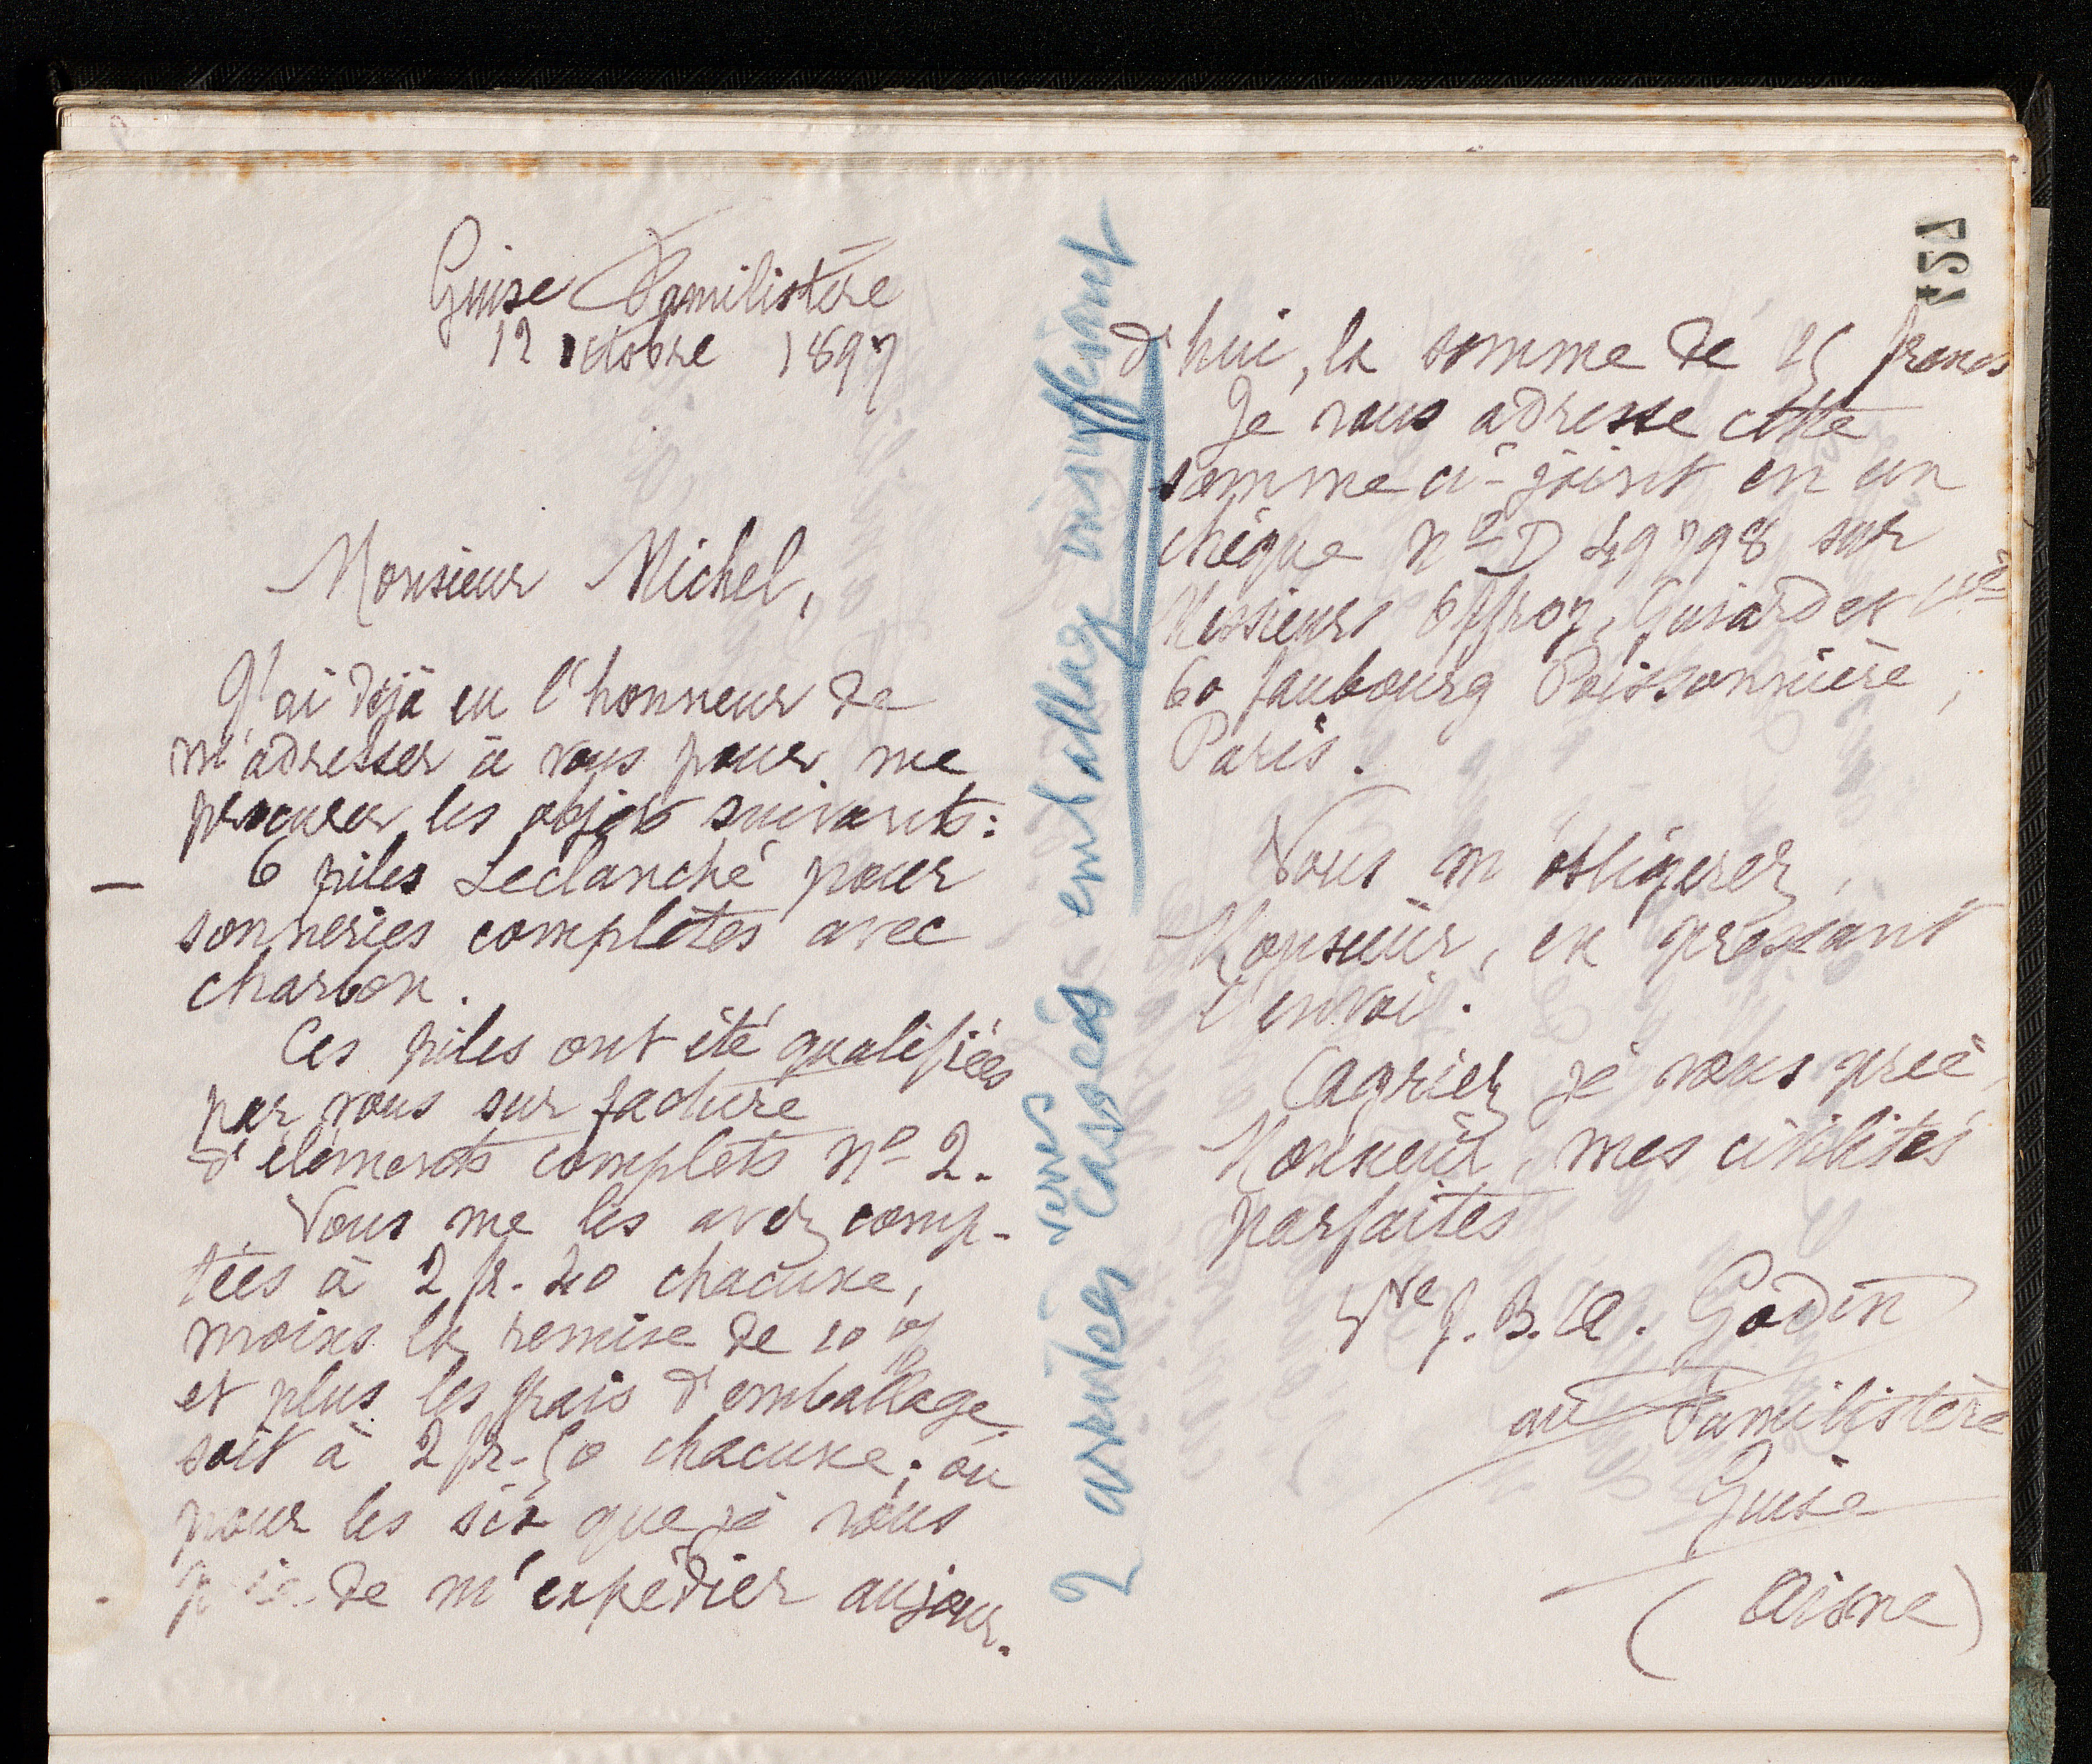 Guise Familistère
12 octobre 1897
Monsieur Michel,
J'ai déjà eu l'honneur de
m'adresser à vous pour me
procurer les objets suivants:
— 6 piles Leclanché pour
sonneries complètes avec
charbon.
Ces piles ont été qualifiées
par vous sur facture
d'éléments complets Nº 2.
Vous me les avez comp-
tées à 2 fr. 40 chacune,
moins la remise de 10 %
et plus les frais d'emballage
soit à 2 fr. 50 chacune; ou
pour les six que je vous
prie de m'expédier aujour-
2 arrivées verres cassées emballage insuffisant
d'hui, la somme de 15 francs
Je vous adresse cette
somme ci-joint en un
chèque Nº D 49798 sur
Messieurs Offroy, Guiard et Cie
60 faubourg Poissonnière,
Paris.
Vous m'obligerez,
Monsieur, en pressant
l'envoi.
Agréez je vous prie
Monsieur, mes civilités
parfaites
Vve J. B. A. Godin
au Familistère
Guise
(Aisne)